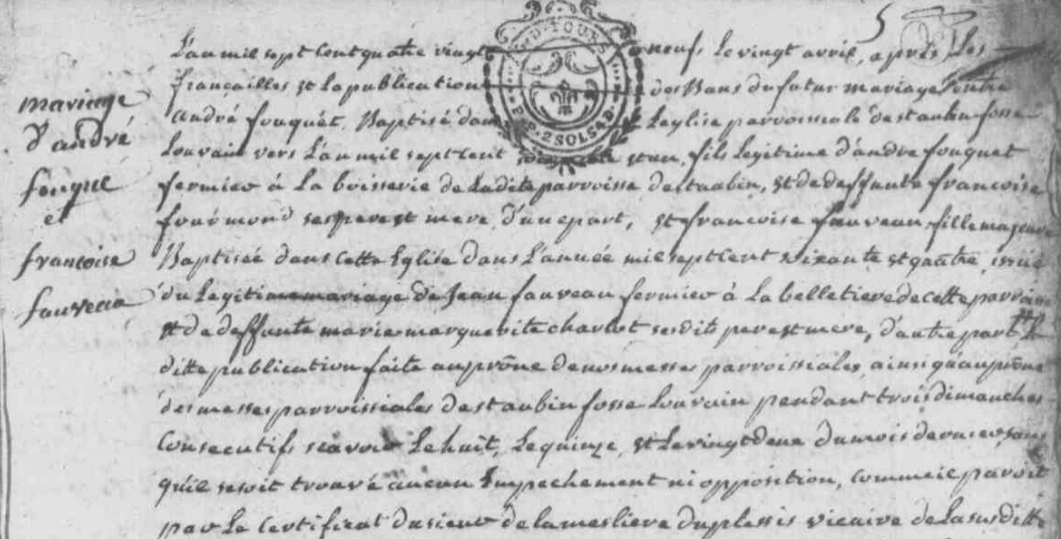 L'an mil sept cent quatre vingt neuf le vingt avril, après les
fiançailles et la publication des Bans du futur mariage entre
andré fouquet, Baptisé dans L'eglise parroissiale de st aubin fosse
Louvain vers L'an mil sept cent et un, fils legitime d'andre fouquet
fermier à La boisserie de Ladite parroisse de st aubin, et de deffunte francoise
fourmond ses pere et mere, d'une part, et francoise fauveau fille majeure
Baptisée dans cette Eglise dans L'année mil sept Cent soixante et quatre, issüe
du Legitime mariage de Jean fauveau fermier à La belletiere de cette parroisse
et de deffunte marie marguerite charlot ses dits pere et mere, d'autre part, la
ditte publication faite au prône de nos messes parroissiales, ainsi qu'au prône
des messes parroissiales de st aubin fosse Louvain pendant trois dimanches
Consecutifs sçavoir Le huit, Le quinze, et Le vingt deux du mois dernier sans
qu'il se soit trouvé aucun Empechement ni opposition, comme il paroit
par Le Certificat du sieur de la mesliere duplessis vicaire de La susditte
mariage
d'andré
fouque
et
francoise
fauveau
G. D. TOURS
2 SOLS